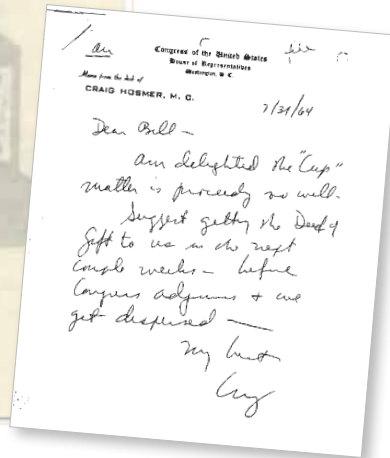 air file
Congress of the United States
House of Representatives
Washington, D. C.
Memo from the desk of
CRAIG HOSMER, M. C.
7/31/64
Dear Bill —
Am delighted the "Cup"
matter is proceedg so well.
Suggest gettg the Deed of
Gift to us in the next
couple weeks — before
Congress adjourns + we
get dispersed —
My best
Craig